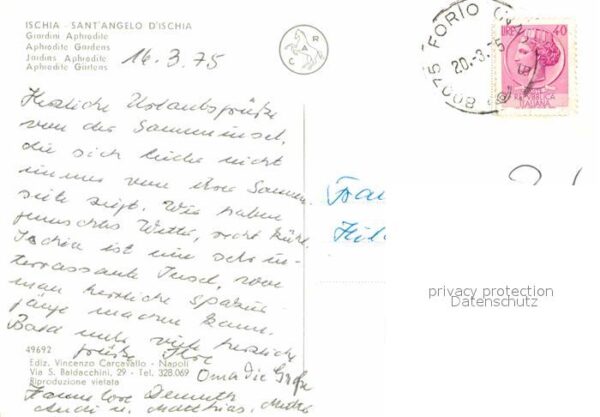 ISCHIA - SANT'ANGELO D'ISCHIA
Giardini Aphrodite
Aphrodite Gardens
Jardins Aphrodite
Aphrodite Gärtens
C A R
16.3.75
80075 FORIO (NA)
20.-3.75
LIRE 40
REPUBBLICA
ITALIANA
Herzliche Urlaubsgrüße
von der Sonneninsel,
die sich leider nicht
immer von ihrer Sonnen-
seite zeigt. Wir haben
Wetter, recht kühl.
Ischia ist eine sehr in-
terressante Insel, wo
man herrliche Spazier-
gänge machen kann.
Bald mehr, viele herzliche
Grüße
Oma die Große
Hannelore
Andi u. Matthias
Frau
privacy protection
Datenschutz
49692
Ediz. Vincenzo Carcavallo - Napoli
Via S. Baldacchini, 29 - Tel. 328.069
Riproduzione vietata